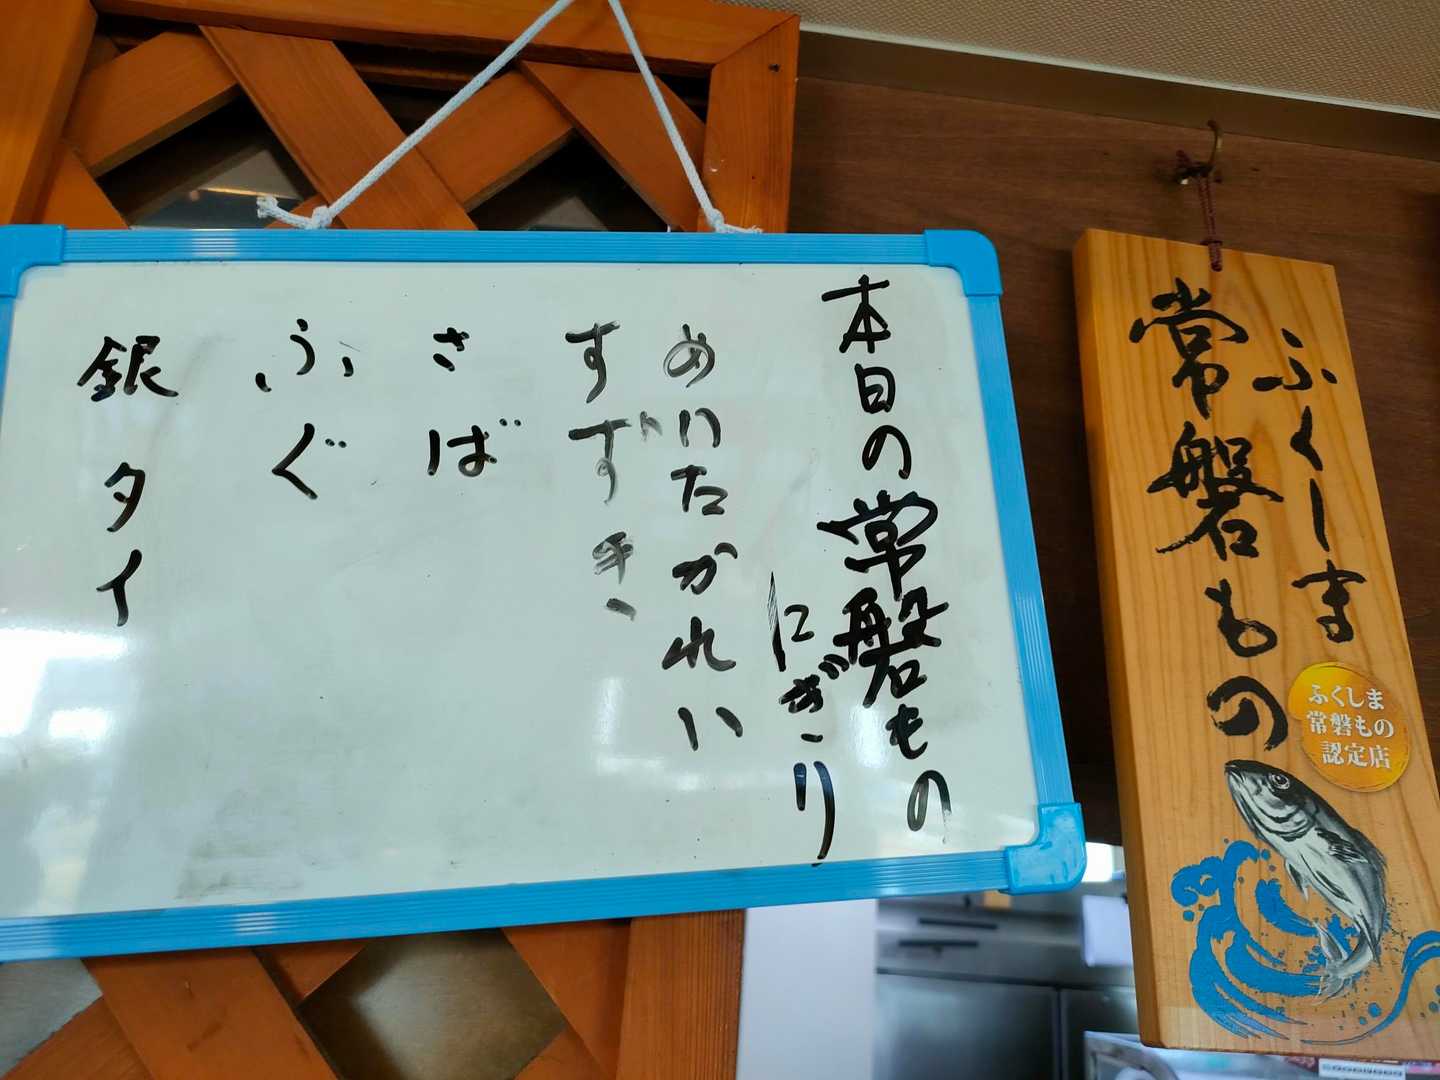 本日の常磐もの
にぎり
めいたかれい
すずき
さば
ふぐ
銀タイ
ふくしま
常磐もの
ふくしま
常磐もの
認定店